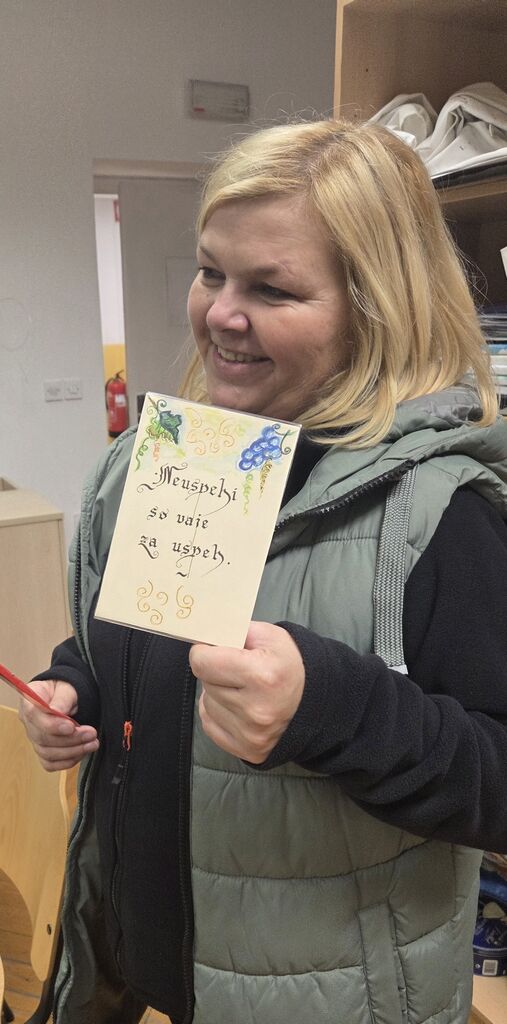 Neuspehi
so vaje
za uspeh.